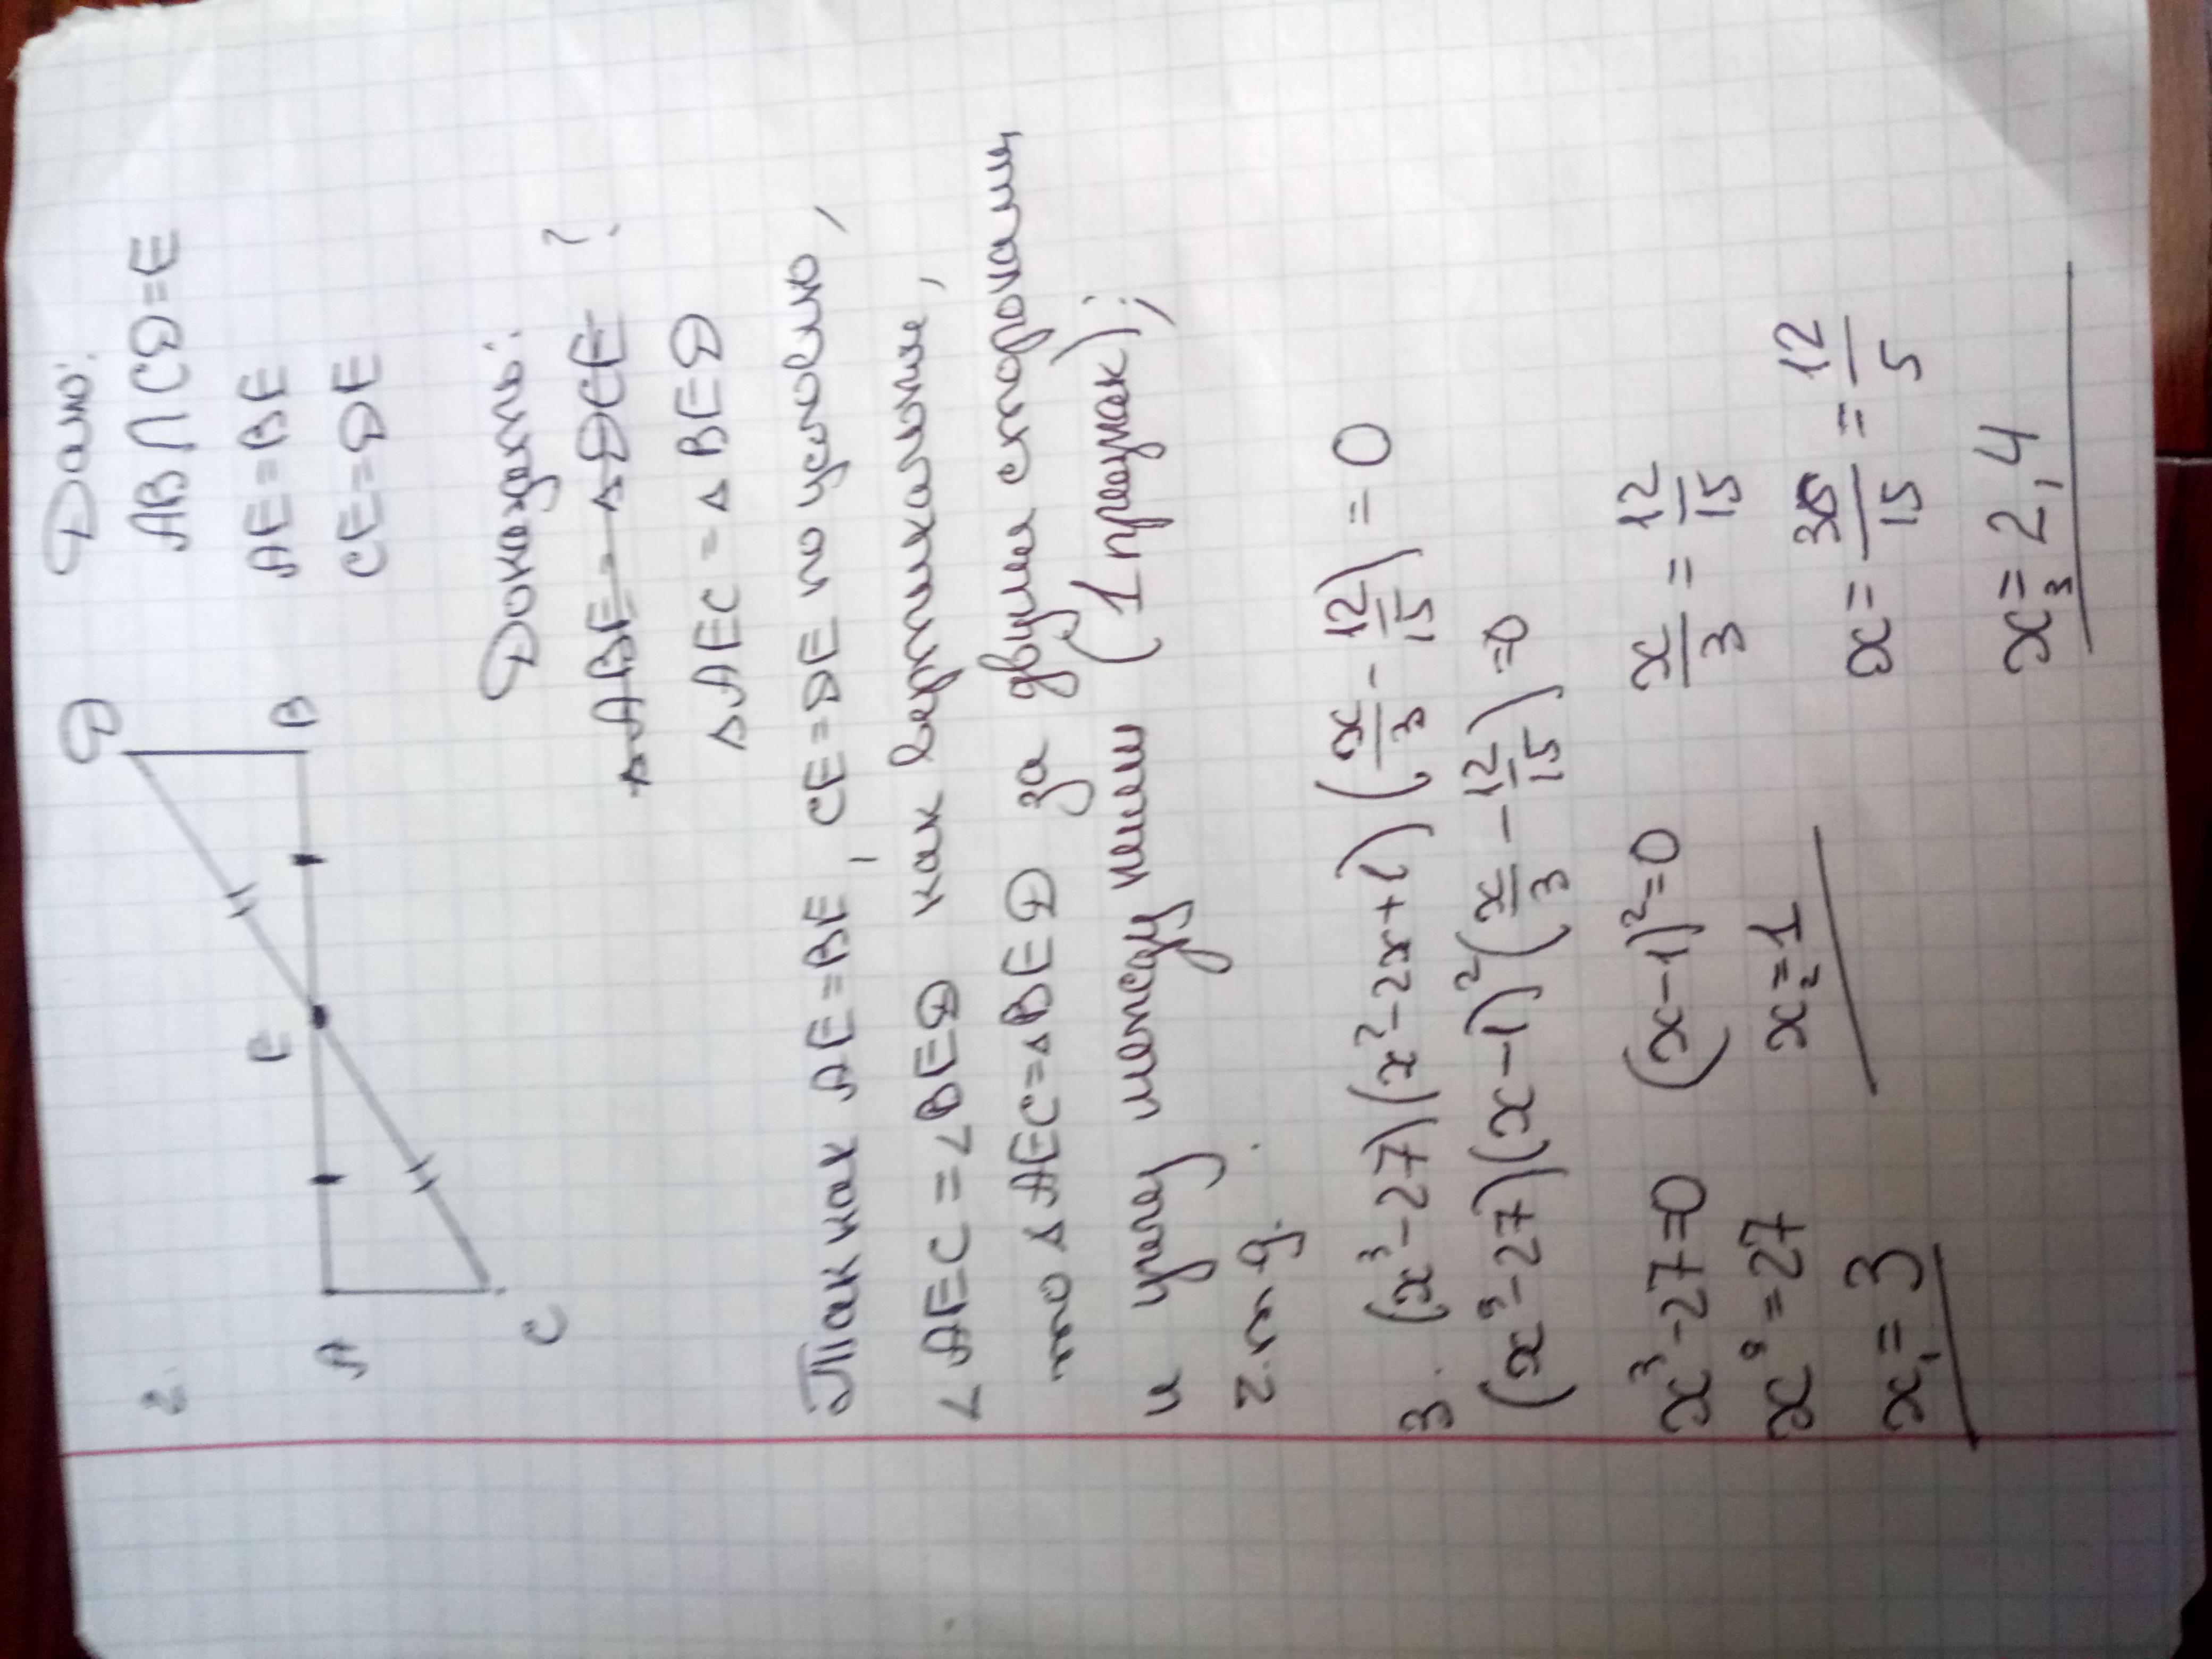 2.
D
E
B
A
C
Дано:
AB ∩ CD = E
AE = BE
CE = DE
Доказать:
△ABE = △DCE ?
△AEC = △BED
Так как AE = BE, CE = DE по условию,
∠AEC = ∠BED как вертикальные,
то △AEC = △BED за двумя сторонами
и углу между ними (1 признак);
ч.т.д.
3. (x³ - 27)(x² - 2x + 1)(x/3 - 12/15) = 0
(x³ - 27)(x - 1)²(x/3 - 12/15) = 0
x³ - 27 = 0 (x - 1)² = 0 x/3 = 12/15
x³ = 27 x₂ = 1 x = 36/15 = 12/5
x₁ = 3 x₃ = 2,4